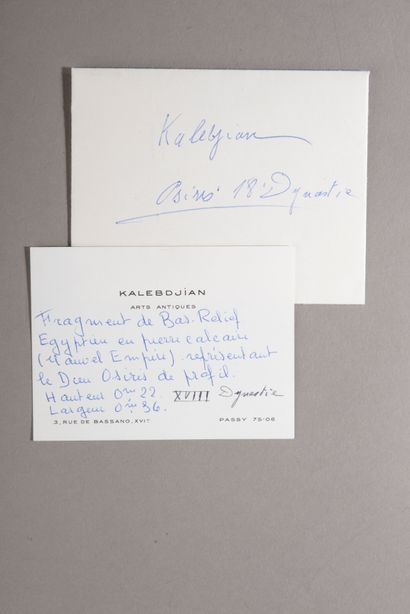 Kalebdjian
Osiris 18e Dynastie
KALEBDJIAN
ARTS ANTIQUES
Fragment de Bas-Relief
Egyptien en pierre calcaire
(Nouvel Empire) représentant
le Dieu Osiris de profil.
Hauteur 0m22. XVIII Dynastie
Largeur 0m36.
3, RUE DE BASSANO, XVIe PASSY 75-06